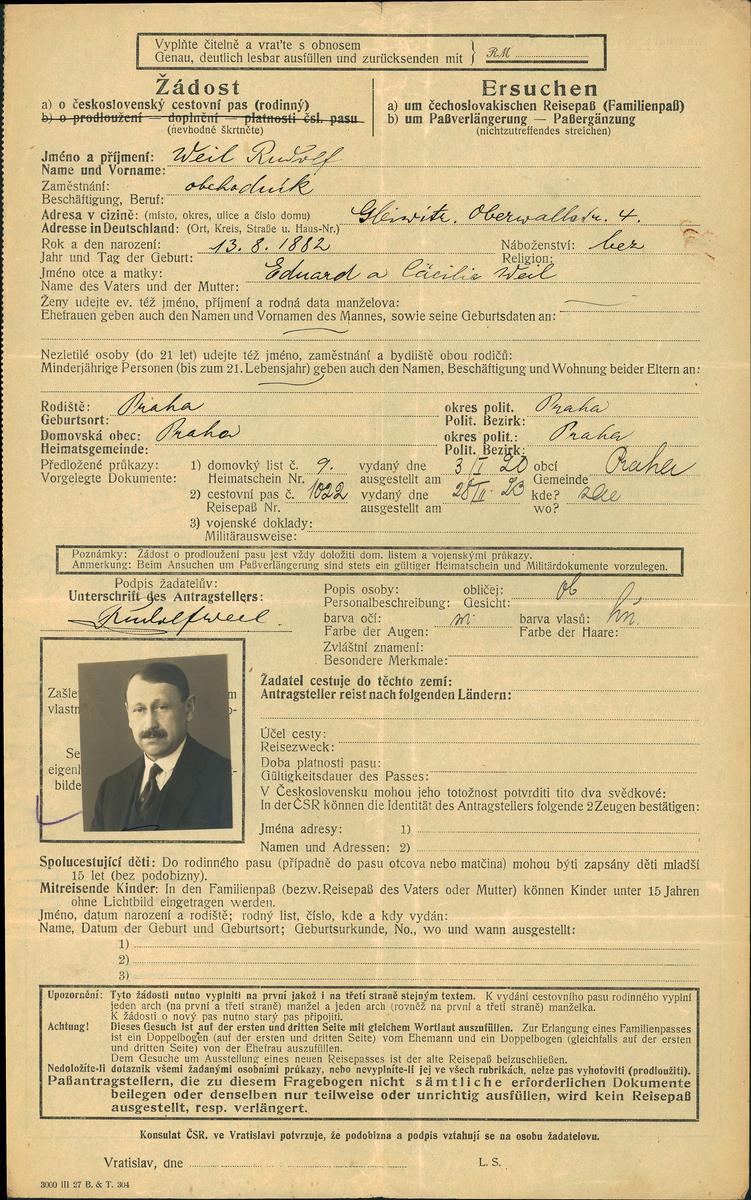 Vyplňte čitelně a vraťte s obnosem
Genau, deutlich lesbar ausfüllen und zurücksenden mit } RM
Žádost
a) o československý cestovní pas (rodinný)
b) o prodloužení — doplnění — platnosti čsl. pasu
(nevhodné škrtněte)
Ersuchen
a) um čechoslovakischen Reisepaß (Familienpaß)
b) um Paßverlängerung — Paßergänzung
(nichtzutreffendes streichen)
Jméno a příjmení: Weil Rudolf
Name und Vorname:
Zaměstnání: obchodník
Beschäftigung, Beruf:
Adresa v cizině: (místo, okres, ulice a číslo domu) Gleiwitz. Oberwallstr. 4.
Adresse in Deutschland: (Ort, Kreis, Straße u. Haus-Nr.)
Rok a den narození: 13. 8. 1882 Náboženství: bez
Jahr und Tag der Geburt: Religion:
Jméno otce a matky: Eduard a Cäcilie Weil
Name des Vaters und der Mutter:
Ženy udejte ev. též jméno, příjmení a rodná data manželova:
Ehefrauen geben auch den Namen und Vornamen des Mannes, sowie seine Geburtsdaten an:
Nezletilé osoby (do 21 let) udejte též jméno, zaměstnání a bydliště obou rodičů:
Minderjährige Personen (bis zum 21. Lebensjahr) geben auch den Namen, Beschäftigung und Wohnung beider Eltern an:
Rodiště: Praha okres polit. Praha
Geburtsort: Polit. Bezirk:
Domovská obec: Praha okres polit.: Praha
Heimatsgemeinde: Polit. Bezirk:
Předložené průkazy: 1) domovký list č. 9. vydaný dne 3/I 20 obcí Praha
Vorgelegte Dokumente: Heimatschein Nr. ausgestellt am Gemeinde
2) cestovní pas č. 1022 vydaný dne 28/II. 23 kde? zde
Reisepaß Nr. ausgestellt am wo?
3) vojenské doklady:
Militärausweise:
Poznámky: Žádost o prodloužení pasu jest vždy doložiti dom. listem a vojenskými průkazy.
Anmerkung: Beim Ansuchen um Paßverlängerung sind stets ein gültiger Heimatschein und Militärdokumente vorzulegen.
Podpis žadatelův:
Unterschrift des Antragstellers:
Rudolf Weil
Popis osoby: obličej: ob
Personalbeschreibung: Gesicht:
barva očí: barva vlasů: hn.
Farbe der Augen: Farbe der Haare:
Zvláštní znamení:
Besondere Merkmale:
Zašle
vlastn
Se
eigenh
bilde
Žadatel cestuje do těchto zemí:
Antragsteller reist nach folgenden Ländern:
Účel cesty:
Reisezweck:
Doba platnosti pasu:
Gültigkeitsdauer des Passes:
V Československu mohou jeho totožnost potvrditi tito dva svědkové:
In der ČSR können die Identität des Antragstellers folgende 2 Zeugen bestätigen:
Jména adresy: 1)
Namen und Adressen: 2)
Spolucestující děti: Do rodinného pasu (případně do pasu otcova nebo matčina) mohou býti zapsány děti mladší
15 let (bez podobizny).
Mitreisende Kinder: In den Familienpaß (bezw. Reisepaß des Vaters oder Mutter) können Kinder unter 15 Jahren
ohne Lichtbild eingetragen werden.
Jméno, datum narození a rodiště; rodný list, číslo, kde a kdy vydán:
Name, Datum der Geburt und Geburtsort; Geburtsurkunde, No., wo und wann ausgestellt:
1)
2)
3)
Upozornění: Tyto žádosti nutno vyplniti na první jakož i na třetí straně stejným textem. K vydání cestovního pasu rodinného vyplní
jeden arch (na první a třetí straně) manžel a jeden arch (rovněž na první a třetí straně) manželka.
K žádosti o nový pas nutno starý pas připojiti.
Achtung! Dieses Gesuch ist auf der ersten und dritten Seite mit gleichem Wortlaut auszufüllen. Zur Erlangung eines Familienpasses
ist ein Doppelbogen (auf der ersten und dritten Seite) vom Ehemann und ein Doppelbogen (gleichfalls auf der ersten
und dritten Seite) von der Ehefrau auszufüllen.
Dem Gesuch um Ausstellung eines neuen Reisepasses ist der alte Reisepaß beizuschließen.
Nedoložíte-li dotazník všemi žádanými osobními průkazy, nebo nevyplníte-li jej ve všech rubrikách, nelze pas vyhotoviti (prodloužiti).
Paßantragstellern, die zu diesem Fragebogen nicht sämtliche erforderlichen Dokumente
beilegen oder denselben nur teilweise oder unrichtig ausfüllen, wird kein Reisepaß
ausgestellt, resp. verlängert.
Konsulat ČSR. ve Vratislavi potvrzuje, že podobizna a podpis vztahují se na osobu žadatelovu.
Vratislav, dne L. S.
3000 III 27 B. & T. 304